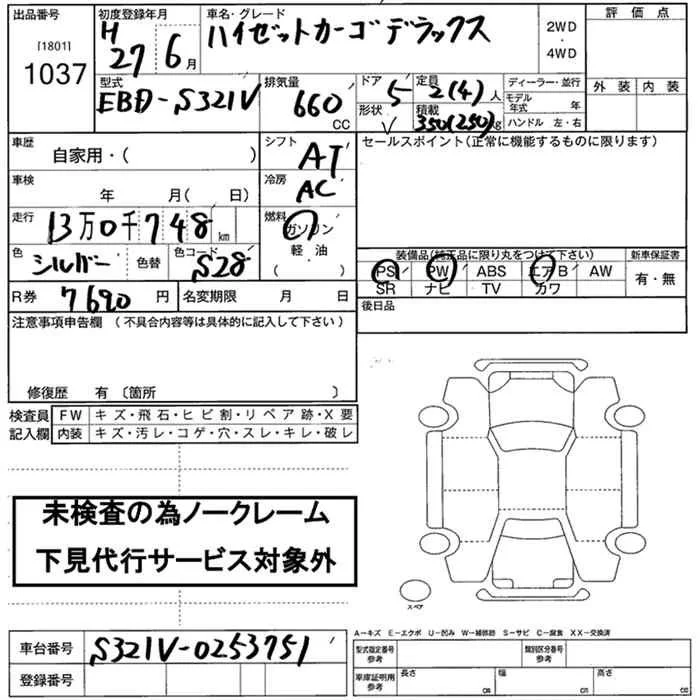 出品番号 [1801] 1037
初度登録年月 H 27 6月
車名・グレード ハイゼットカーゴ デラックス
2WD・4WD
評価点
外装 内装
型式 EBD-S321V
排気量 660 CC
ドア 5
形状 V
定員 2(4)人
積載 350(250)kg
ディーラー・並行
モデル年式 年
ハンドル 左・右
車歴 自家用・( )
シフト AT
セールスポイント(正常に機能するものに限ります)
車検 年 月( 日)
冷房 AC
走行 13万0千748km
燃料 ガソリン 軽油 ( )
色 シルバー 色替
色コード S28
装備品(純正品に限り丸をつけて下さい) 新車保証書
PS PW ABS エアB AW 有・無
SR ナビ TV カワ
R券 7690円 名変期限 月 日
後日品
注意事項申告欄 (不具合内容等は具体的に記入して下さい)
修復歴 有 〔箇所 〕
検査員記入欄
FW キズ・飛石・ヒビ割・リペア跡・X要
内装 キズ・汚レ・コゲ・穴・スレ・キレ・破レ
未検査の為ノークレーム
下見代行サービス対象外
スペア
A-キズ E-エクボ U-凹み W-補修跡 S-サビ C-腐食 XX-交換済
車台番号 S321V-0253751
登録番号
型式指定番号 参考
類別区分番号 参考
車庫証明用 参考 長さ cm 幅 cm 高さ cm